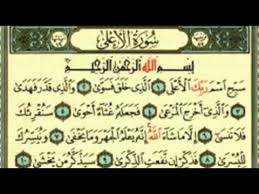 سورة الأعلى
بسم الله الرحمن الرحيم
سبح اسم ربك الأعلى ١ الذي خلق فسوى ٢ والذي قدر فهدى
٣ والذي أخرج المرعى ٤ فجعله غثاء أحوى ٥ سنقرئك
فلا تنسى ٦ إلا ما شاء الله إنه يعلم الجهر وما يخفى ٧ ونيسرك
لليسرى ٨ فذكر إن نفعت الذكرى ٩ سيذكر من يخشى ١٠